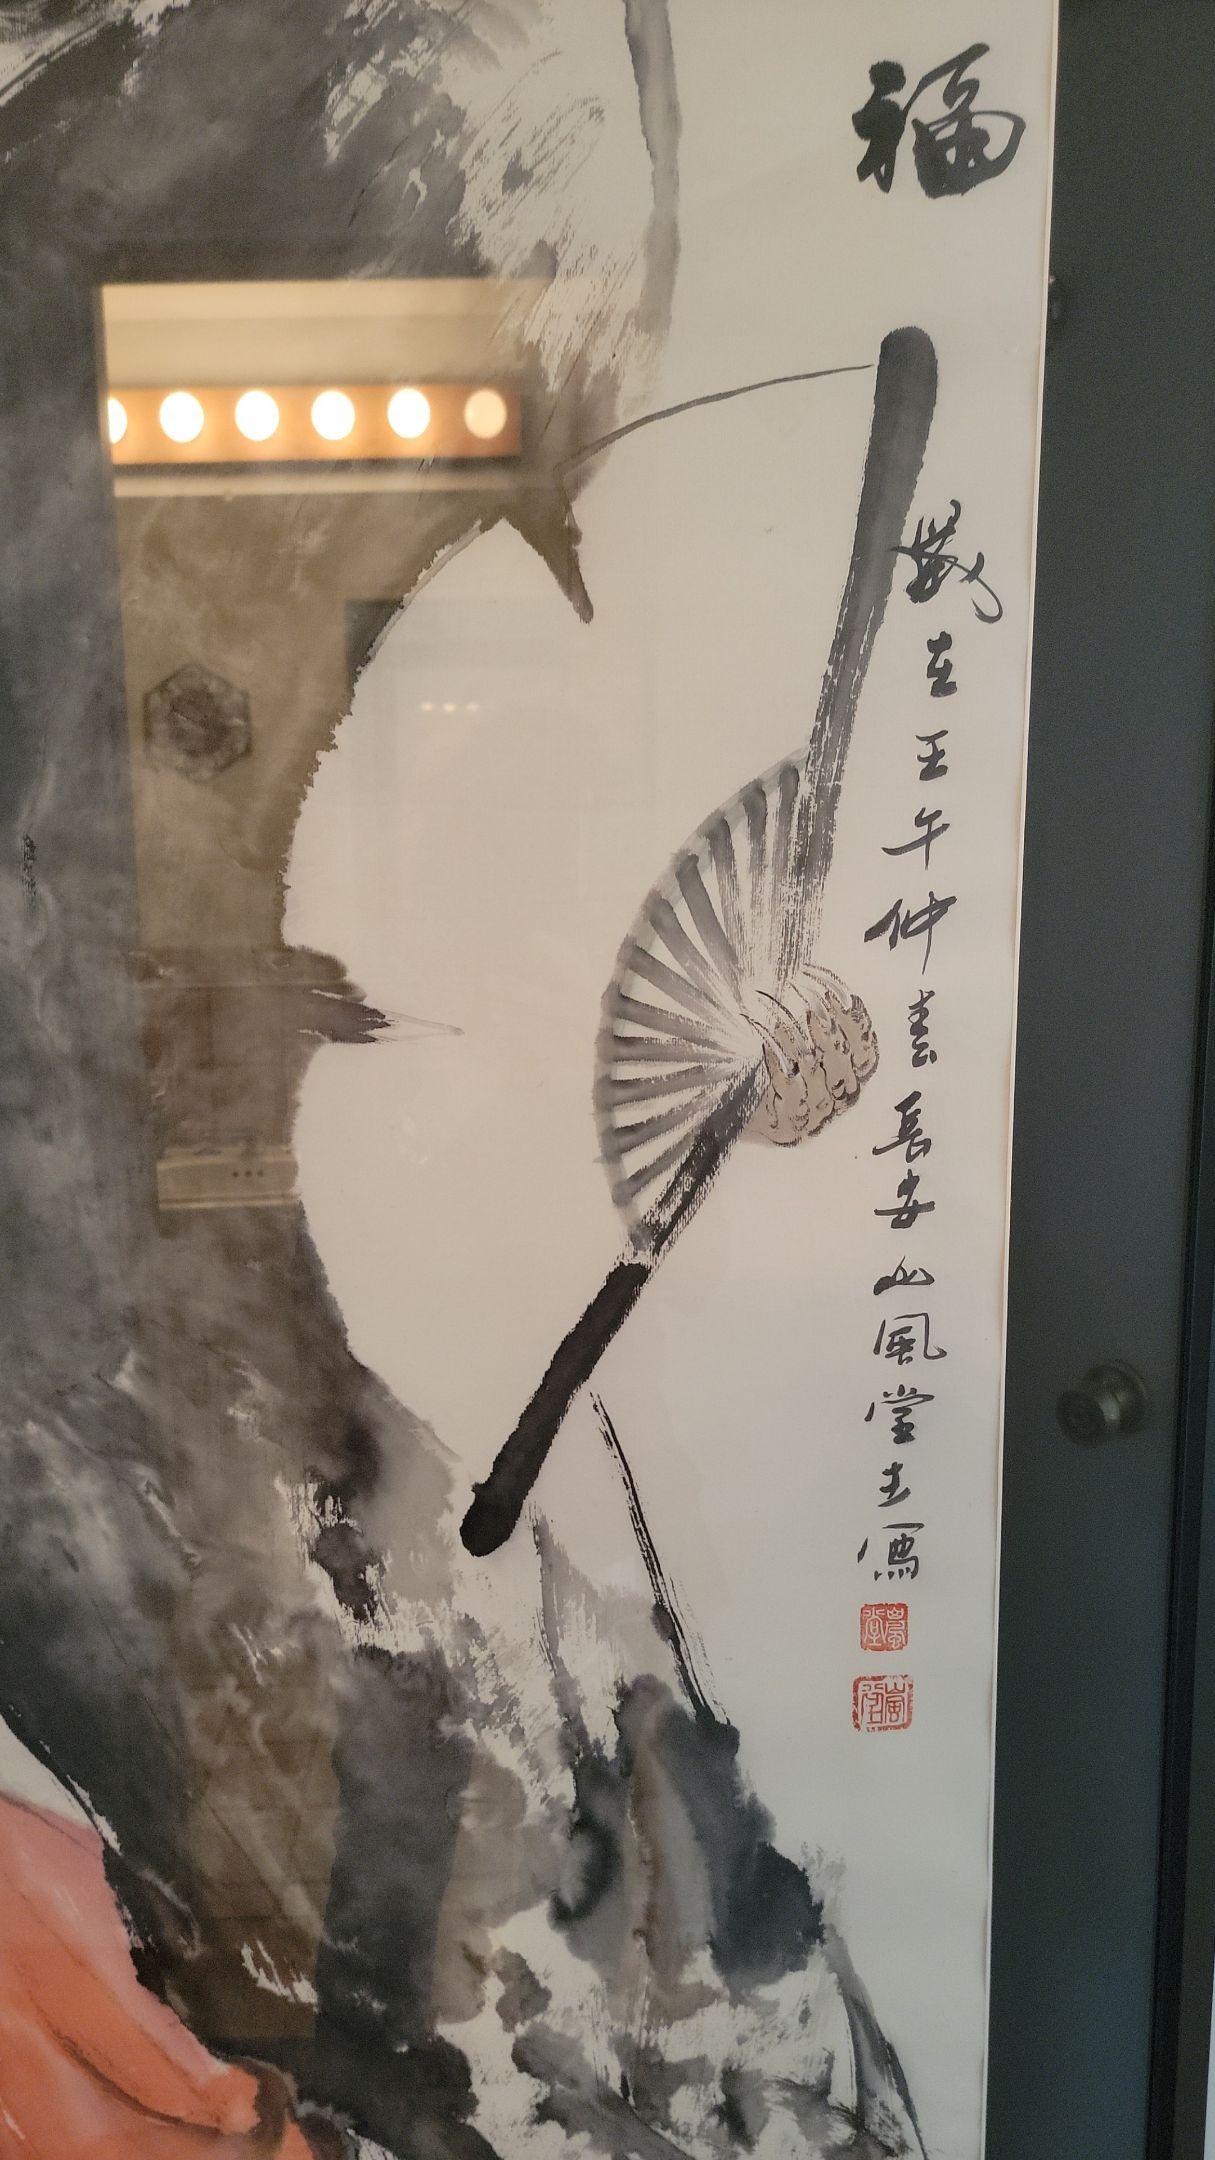 福
歲在壬午仲春長安山風堂主寫